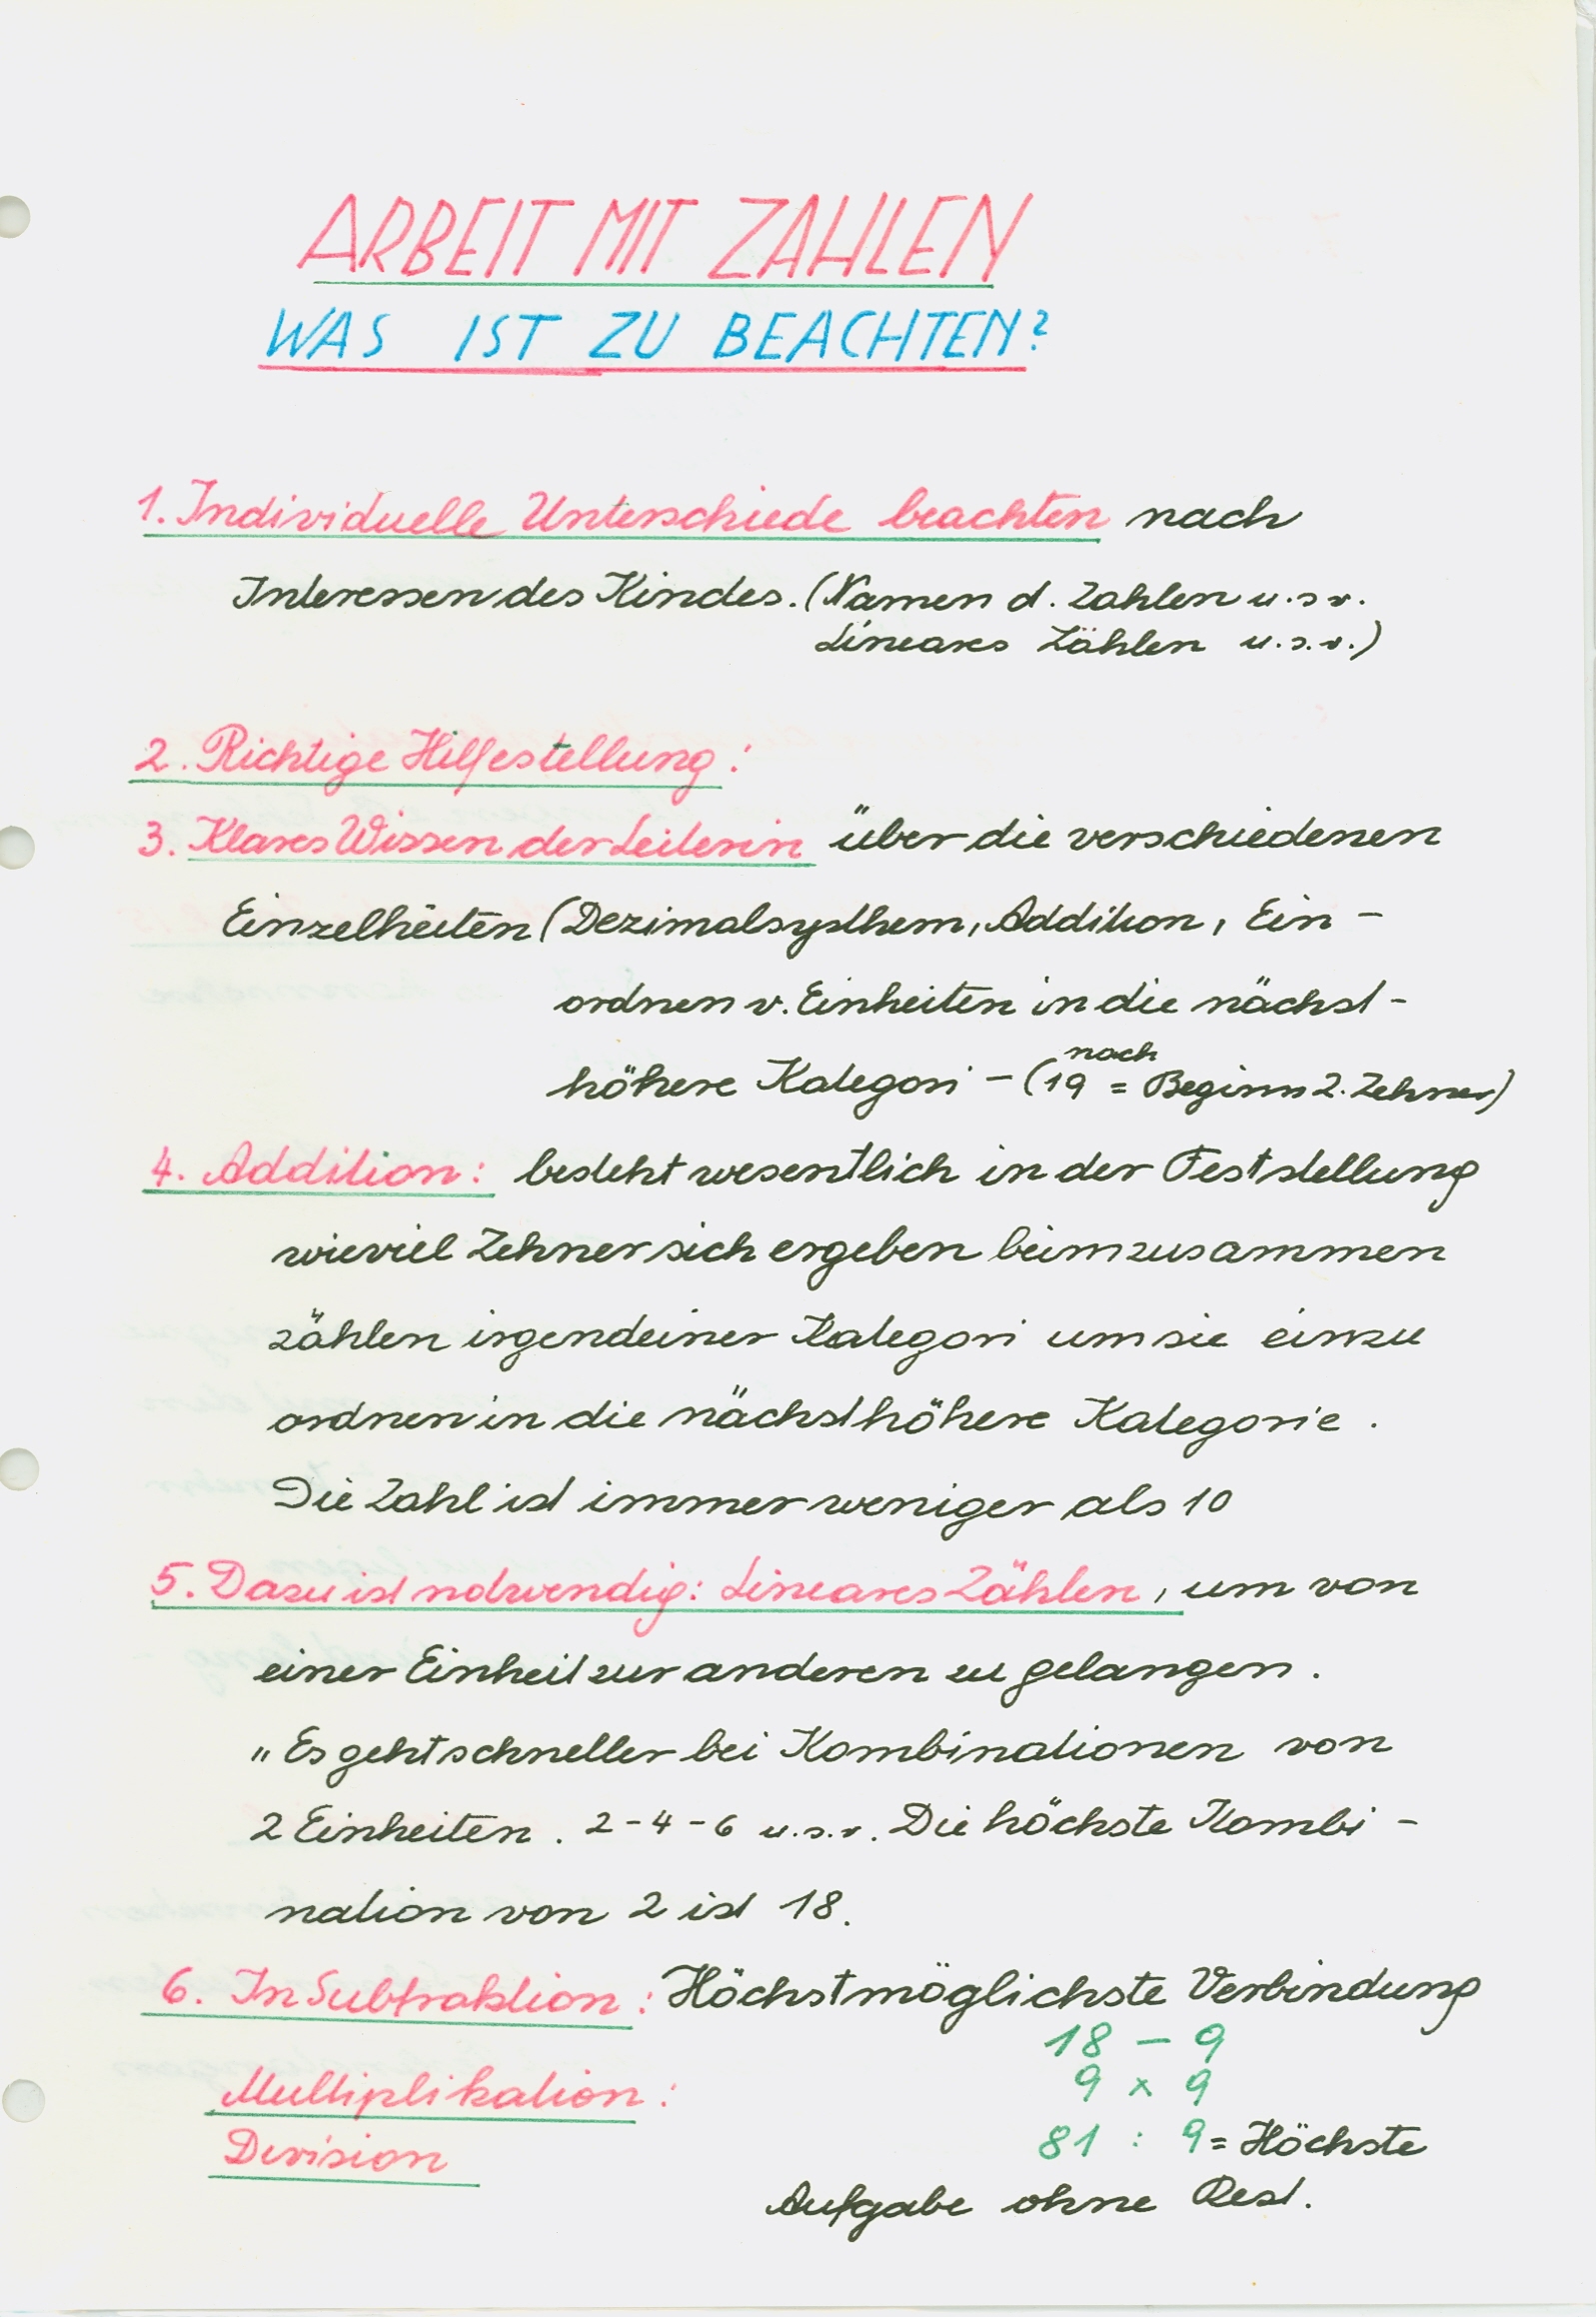 ARBEIT MIT ZAHLEN
WAS IST ZU BEACHTEN?
1. Individuelle Unterschiede beachten nach
Interessen des Kindes. (Namen d. Zahlen u.s.v.
Lineares Zählen u.s.v.)
2. Richtige Hilfestellung:
3. Klares Wissen der Leiterin über die verschiedenen
Einzelheiten (Dezimalsysthem, Addition, Ein-
ordnen v. Einheiten in die nächst-
höhere Kategori - (19 nach = Beginn 2. Zehner)
4. Addition: besteht wesentlich in der Feststellung
wieviel Zehner sich ergeben beim zusammen
zählen irgendeiner Kategori um sie einzu
ordnen in die nächsthöhere Kategorie.
Die Zahl ist immer weniger als 10
5. Dazu ist notwendig: Lineares Zählen, um von
einer Einheit zur anderen zu gelangen.
" Es geht schneller bei Kombinationen von
2 Einheiten. 2-4-6 u.s.v. Die höchste Kombi-
nation von 2 ist 18.
6. In Subtraktion: Höchstmöglichste Verbindung
18 - 9
Multiplikation: 9 x 9
Devision 81 : 9 = Höchste
Aufgabe ohne Rest.